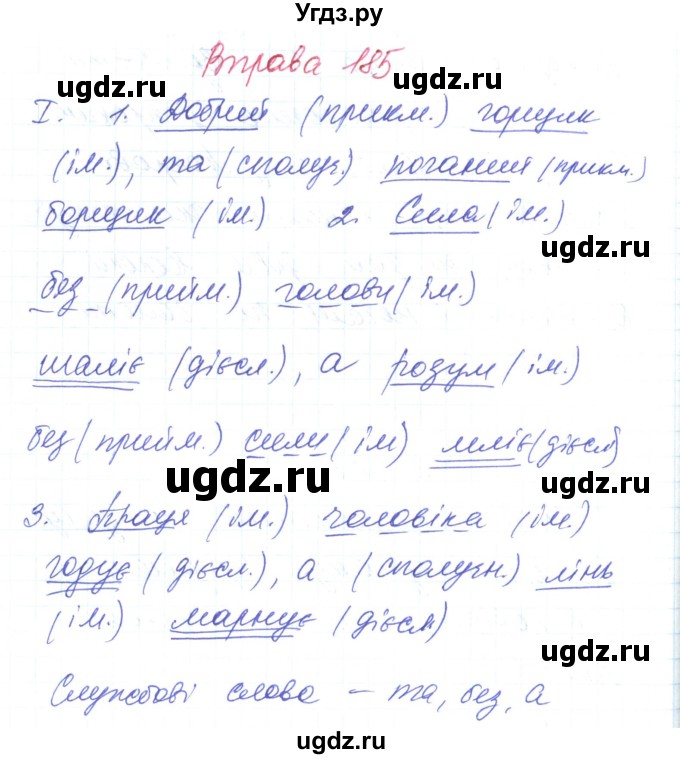 Угдз.ру
Вправа 185
ugdz.ru
ugdz.ru
I. 1. Добрий (прикм.) горщик
(ім.), та (сполуч.) поганий (прикм.)
борщик (ім.) 2. Сила (ім.)
ugdz.ru
ugdz.ru
без (прийм.) голови (ім.)
шаліє (дієсл.), а розум (ім.)
без (прийм.) сили (ім) мліє (дієсл)
ugdz.ru
ugdz.ru
3. Праця (ім.) чоловіка (ім.)
годує (дієсл.), а (сполучн.) лінь
(ім.) марнує (дієсл)
Службові слова – та, без, а
ugdz.ru
ugdz.ru